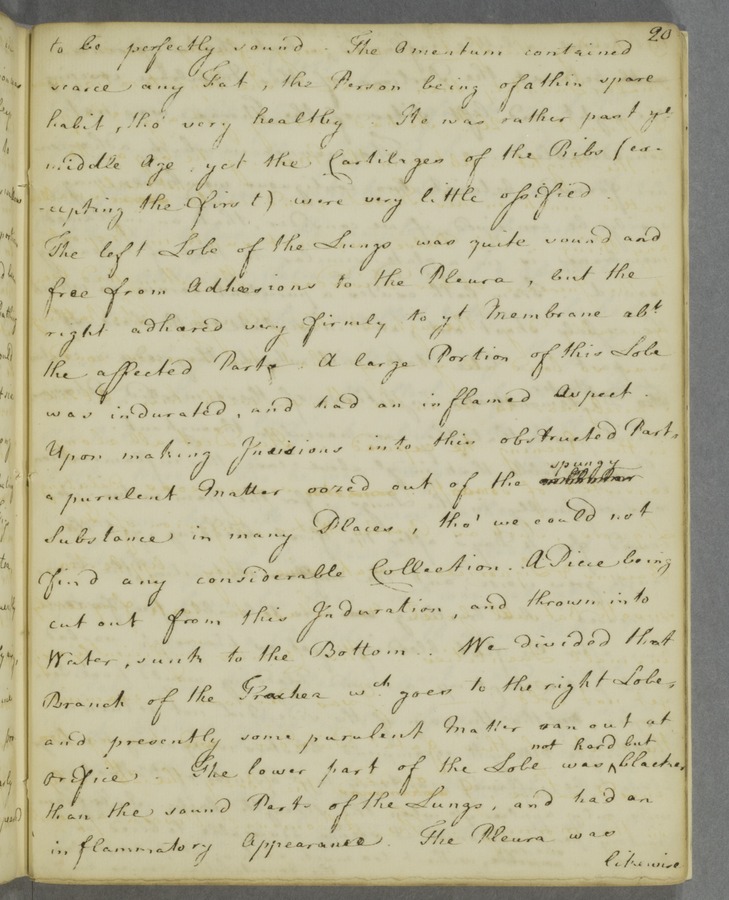 20
to be perfectly sound. The Omentum contained
scarce any Fat, the Person being of a thin spare
habit, tho' very healthy. He was rather past yᵉ
middle Age, yet the Cartilages of the Ribs (ex-
-cepting the first) were very little ossified.
The left Lobe of the Lungs was quite sound and
free from Adhesions to the Pleura, but the
right adhered very firmly to yᵗ Membrane abᵗ
the affected Parts. A large Portion of this Lobe
was indurated, and had an inflamed Aspect.
Upon making Incisions into this obstructed Part,
spungy
a purulent Matter oozed out of the
Substance in many Places, tho' we could not
find any considerable Collection. A Piece being
cut out from this Induration, and thrown into
Water, sunk to the Bottom. We divided that
Branch of the Trachea wᶜʰ goes to the right Lobe,
and presently some purulent Matter ran out at
not hard but
orifice. The lower part of the Lobe was ^ blacker
than the sound Parts of the Lungs, and had an
inflammatory Appearance. The Pleura was
likewise